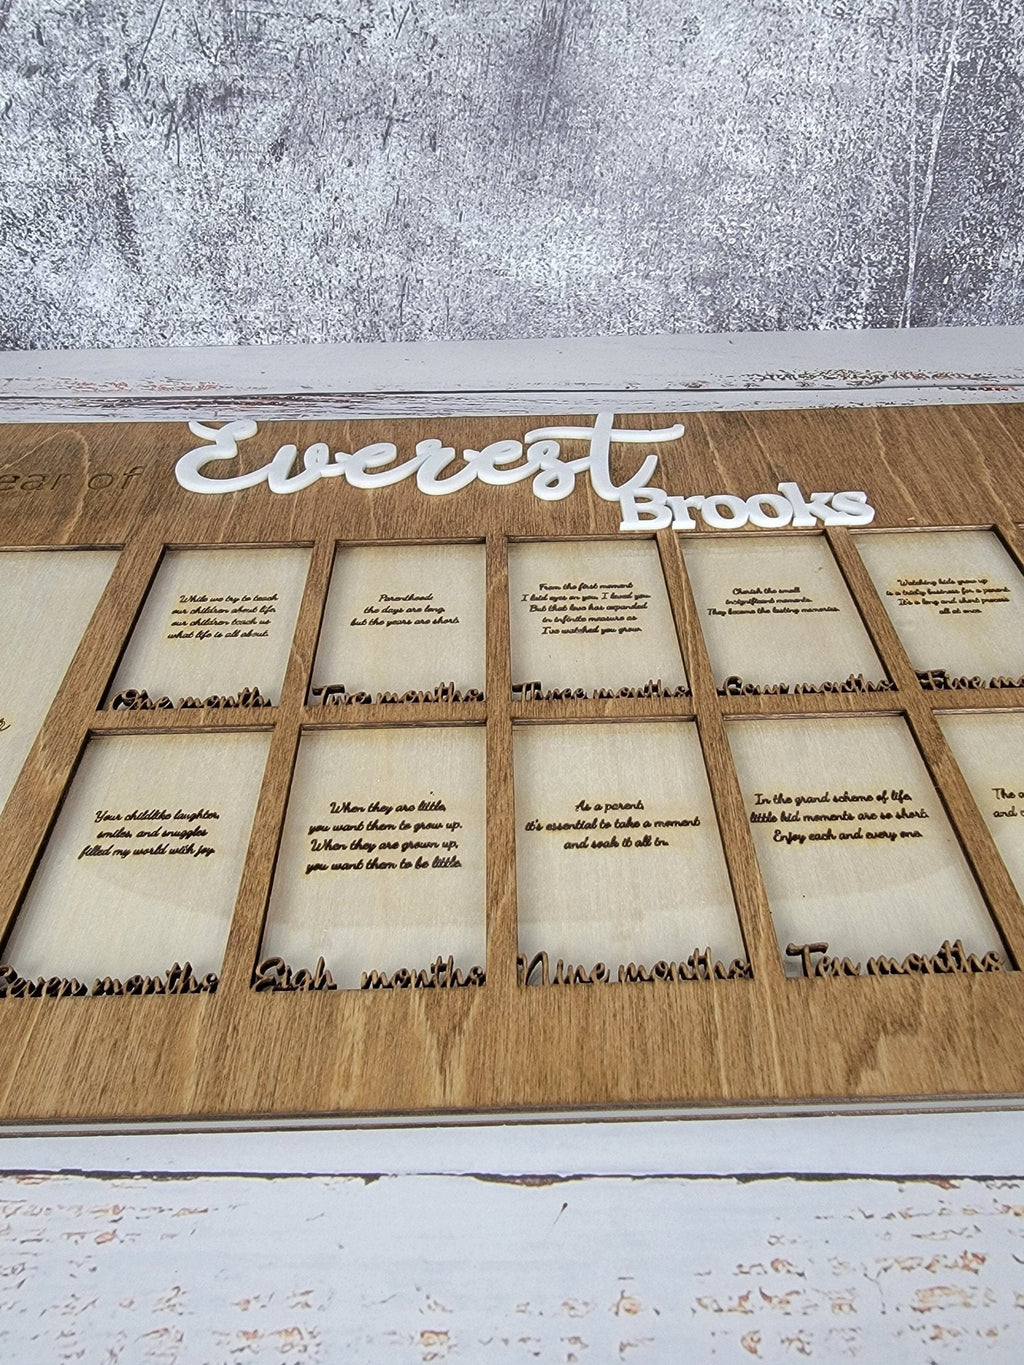 ear of
Everest
Brooks
While we try to teach
our children about life,
our children teach us
what life is all about.
One month
Parenthood:
the days are long,
but the years are short.
Two months
From the first moment
I laid eyes on you, I loved you.
But that love has expanded
in infinite measure as
I've watched you grow.
Three months
Cherish the small
insignificant moments.
They become the lasting memories.
Four months
Watching kids grow up
is a tricky business for a parent.
It's a long and short process
all at once.
Five mon
Your childlike laughter,
smiles, and snuggles
filled my world with joy.
Seven months
When they are little,
you want them to grow up.
When they are grown up,
you want them to be little.
Eigh months
As a parent,
it's essential to take a moment
and soak it all in.
Nine months
In the grand scheme of life,
little kid moments are so short.
Enjoy each and every one.
Ten months
The
and